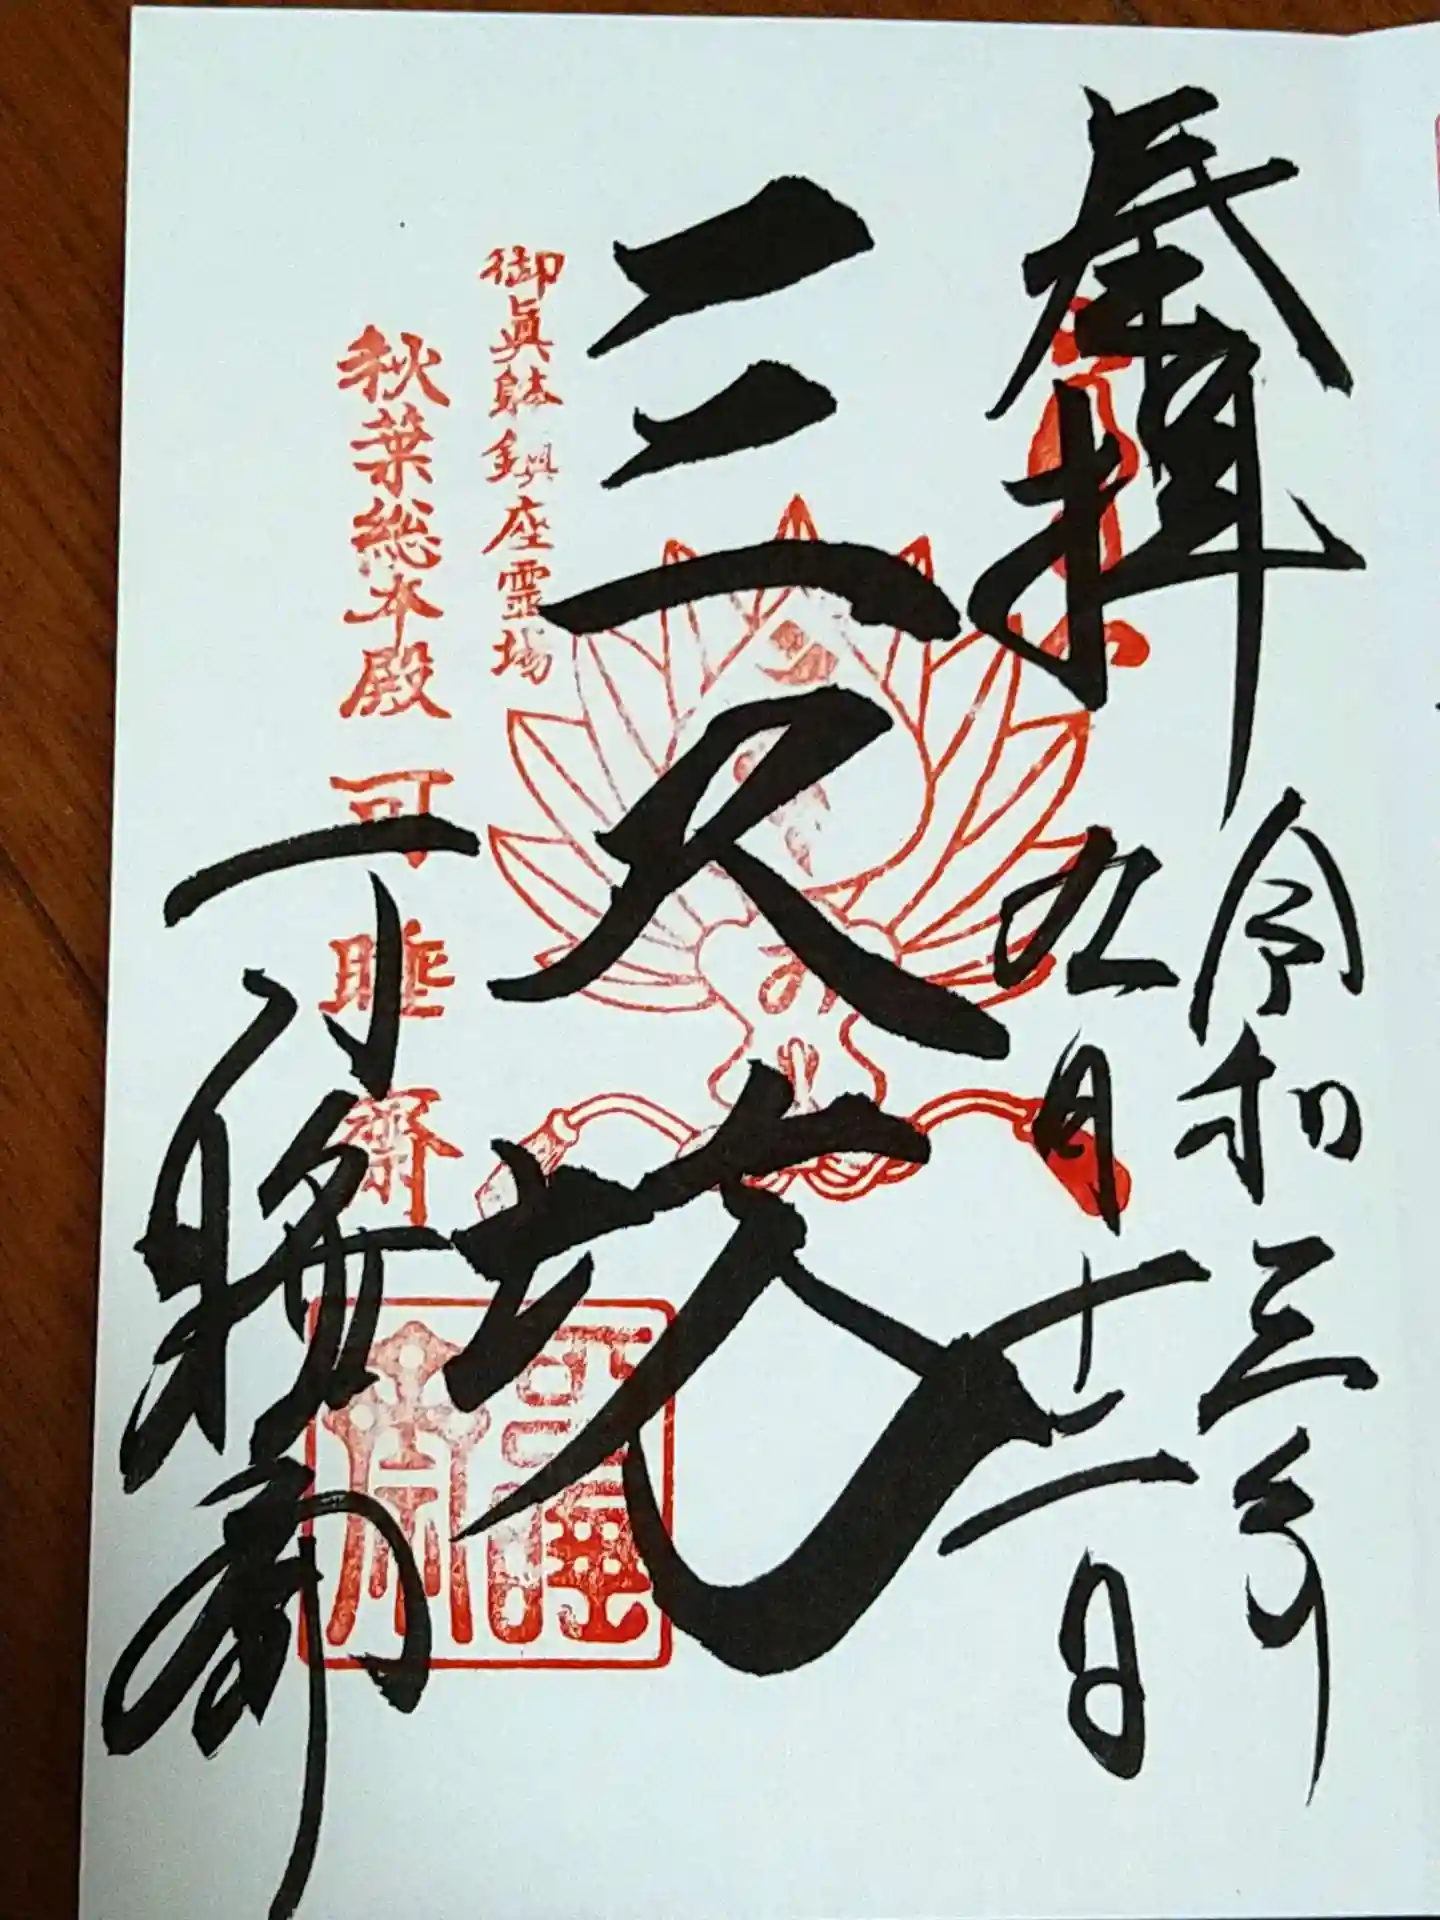 奉拝
令和三年
九月十一日
三尺坊
御眞躰鎭座霊場
秋葉総本殿 可睡齋
可睡齋
可睡齋